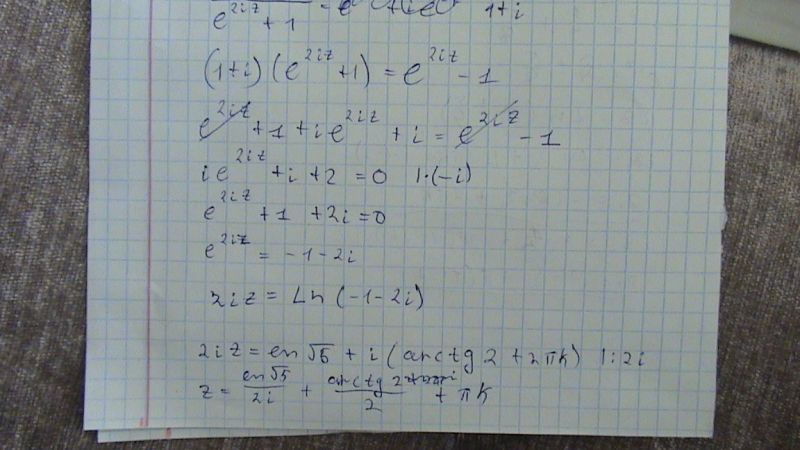 e^{2iz} + 1 1+i
(1+i)(e^{2iz} + 1) = e^{2iz} - 1
e^{2iz} + 1 + ie^{2iz} + i = e^{2iz} - 1
ie^{2iz} + i + 2 = 0 |·(-i)
e^{2iz} + 1 + 2i = 0
e^{2iz} = -1-2i
2iz = Ln(-1-2i)
2iz = ln√5 + i(arctg 2 + 2πk) |:2i
z = ln√5/2i + arctg 2/2 + πk